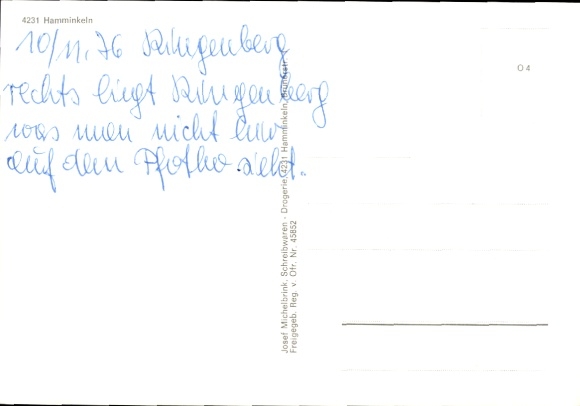 4231 Hamminkeln
10/11.76 Ringenberg
rechts liegt Ringenberg
was man nicht
auf dem Pfotho sieht.
04
Josef Michelbrink, Schreibwaren - Drogerie, 4231 Hamminkeln,
Freigegeb. Reg. v. Ofr. Nr. 45852